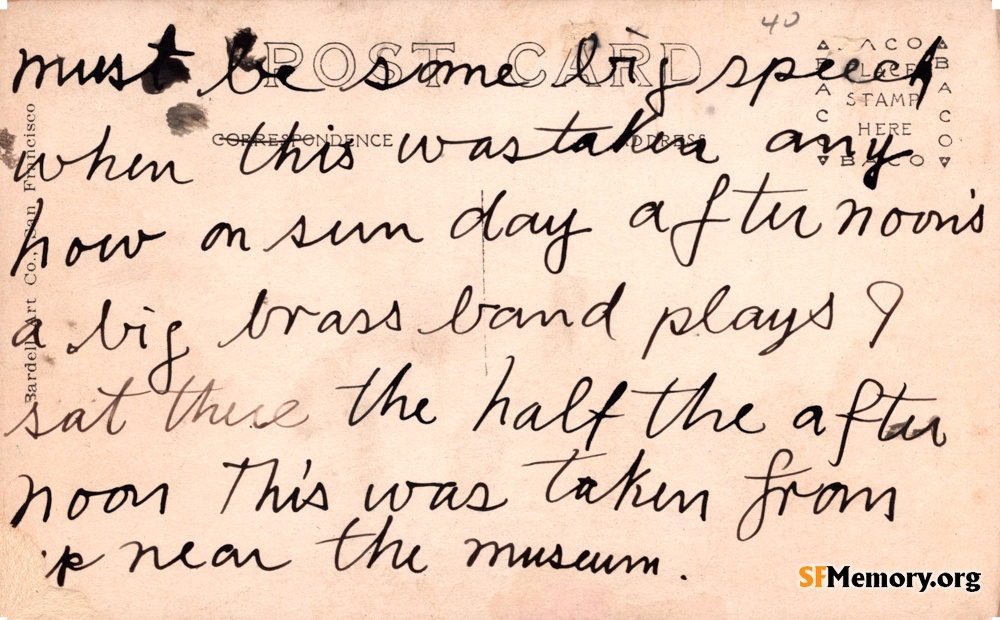 40
POST CARD
BACO
PLACE
STAMP
HERE
BACO
CORRESPONDENCE
ADDRESS
Bardell Art Co., San Francisco
must be some big speech
when this was taken any
how on sun day after noon's
a big brass band plays I
sat there the half the after
noon This was taken from
up near the museum.
SFMemory.org